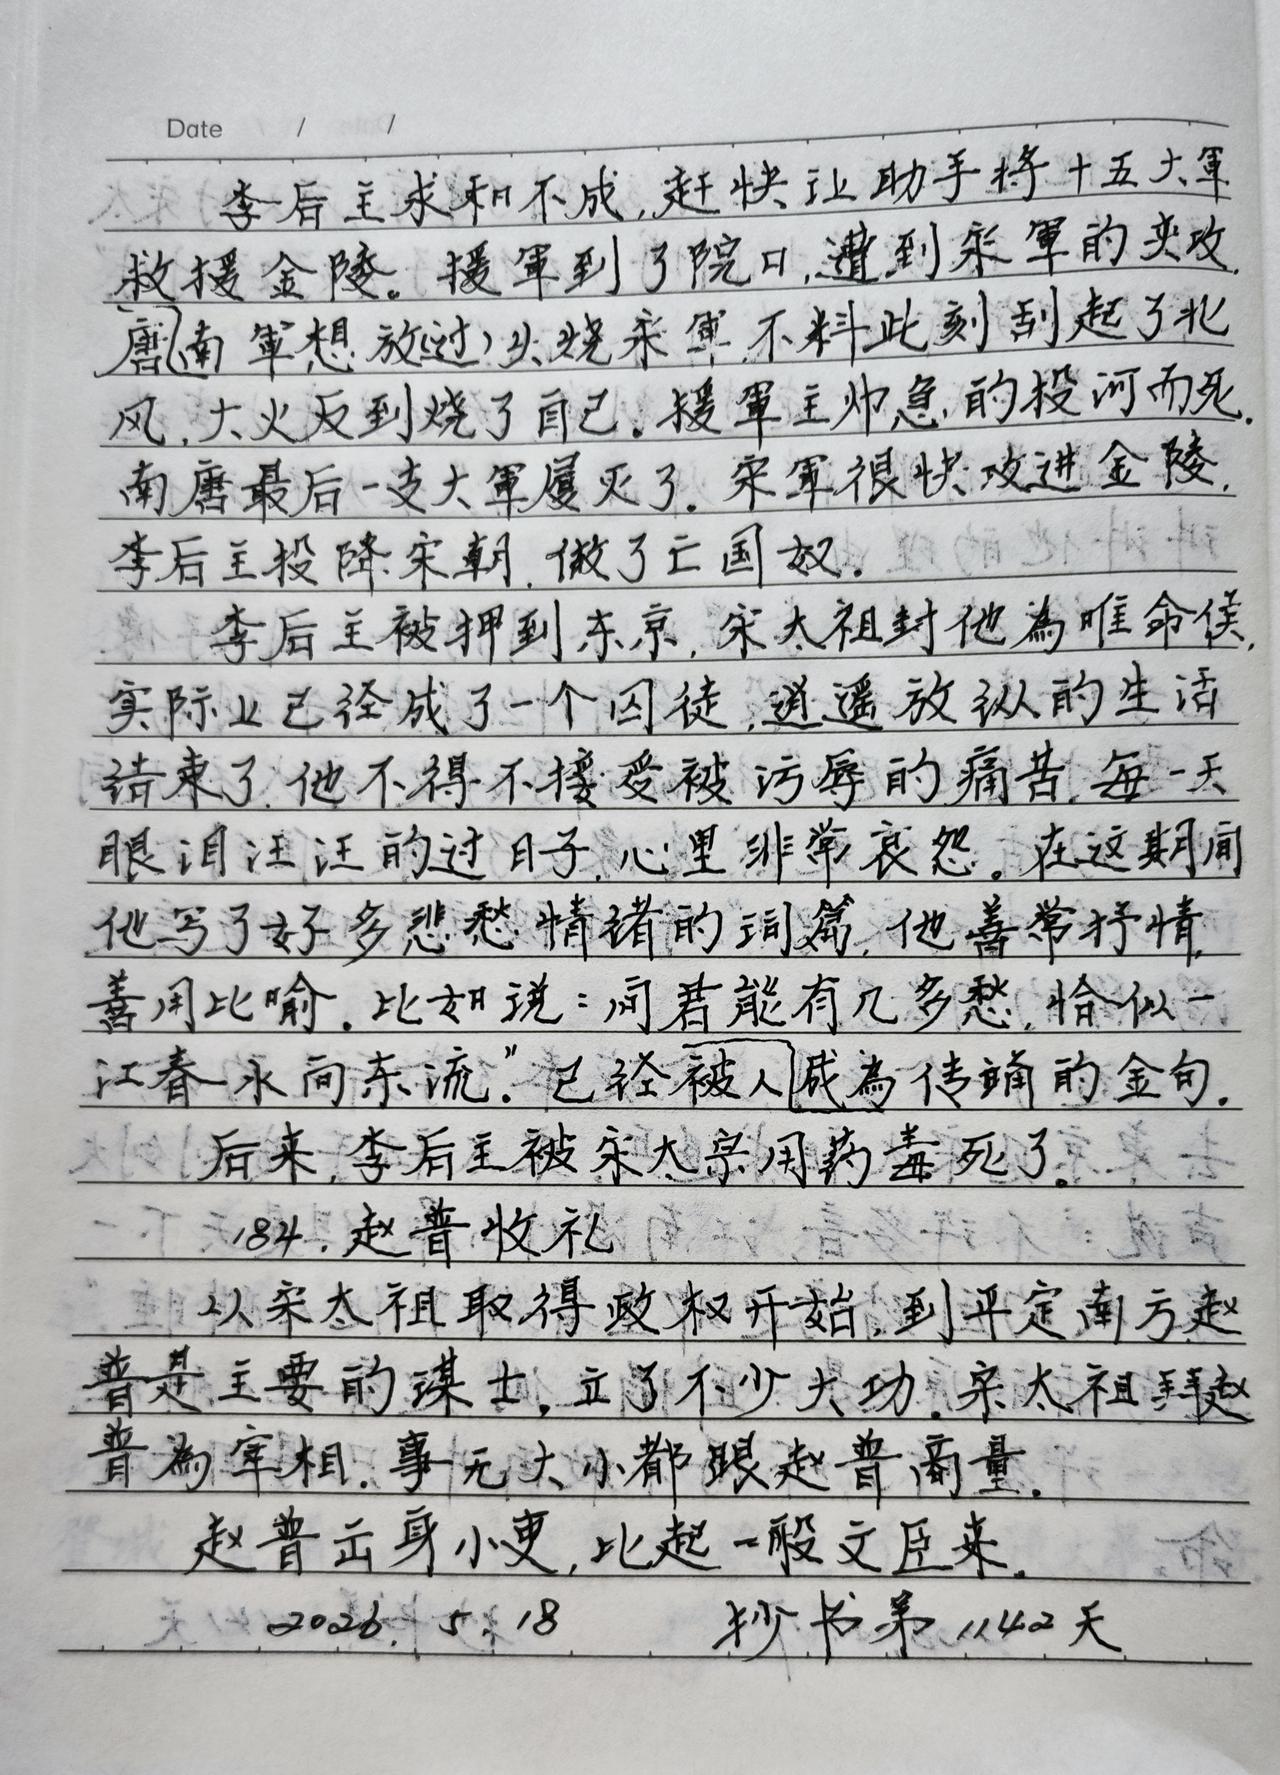 Date / /
李后主求和不成,赶快让助手将十五大軍
救援金陵。援軍到了院口,遭到宋軍的夹攻,
唐南軍想放(过)火烧宋軍,不料此刻刮起了北
风,大火反到烧了自己。援軍主帅急的投河而死.
南唐最后一支大軍履灭了.宋軍很快攻进金陵,
李后主投降宋朝,做了亡国奴.
李后主被押到东京,宋太祖封他為唯命侯,
实际上已经成了一个囚徒,逍遥放纵的生活
结束了.他不得不接受被污辱的痛苦,每一天
眼泪汪汪的过日子,心里非常哀怨。在这期间
他写了好多悲愁情绪的词篇,他善常抒情,
善用比喻.比如说:问君能有几多愁,恰似一
江春水向东流."已经被人成為传誦的金句.
后来,李后主被宋太宗用药毒死了.
184.赵普收礼
以宋太祖取得政权开始,到平定南方,赵
普是主要的谋士,立了不少大功.宋太祖拜赵
普為宰相.事无大小都跟赵普商量.
赵普出身小吏,比起一般文臣来.
2026.5.18 抄书第1142天